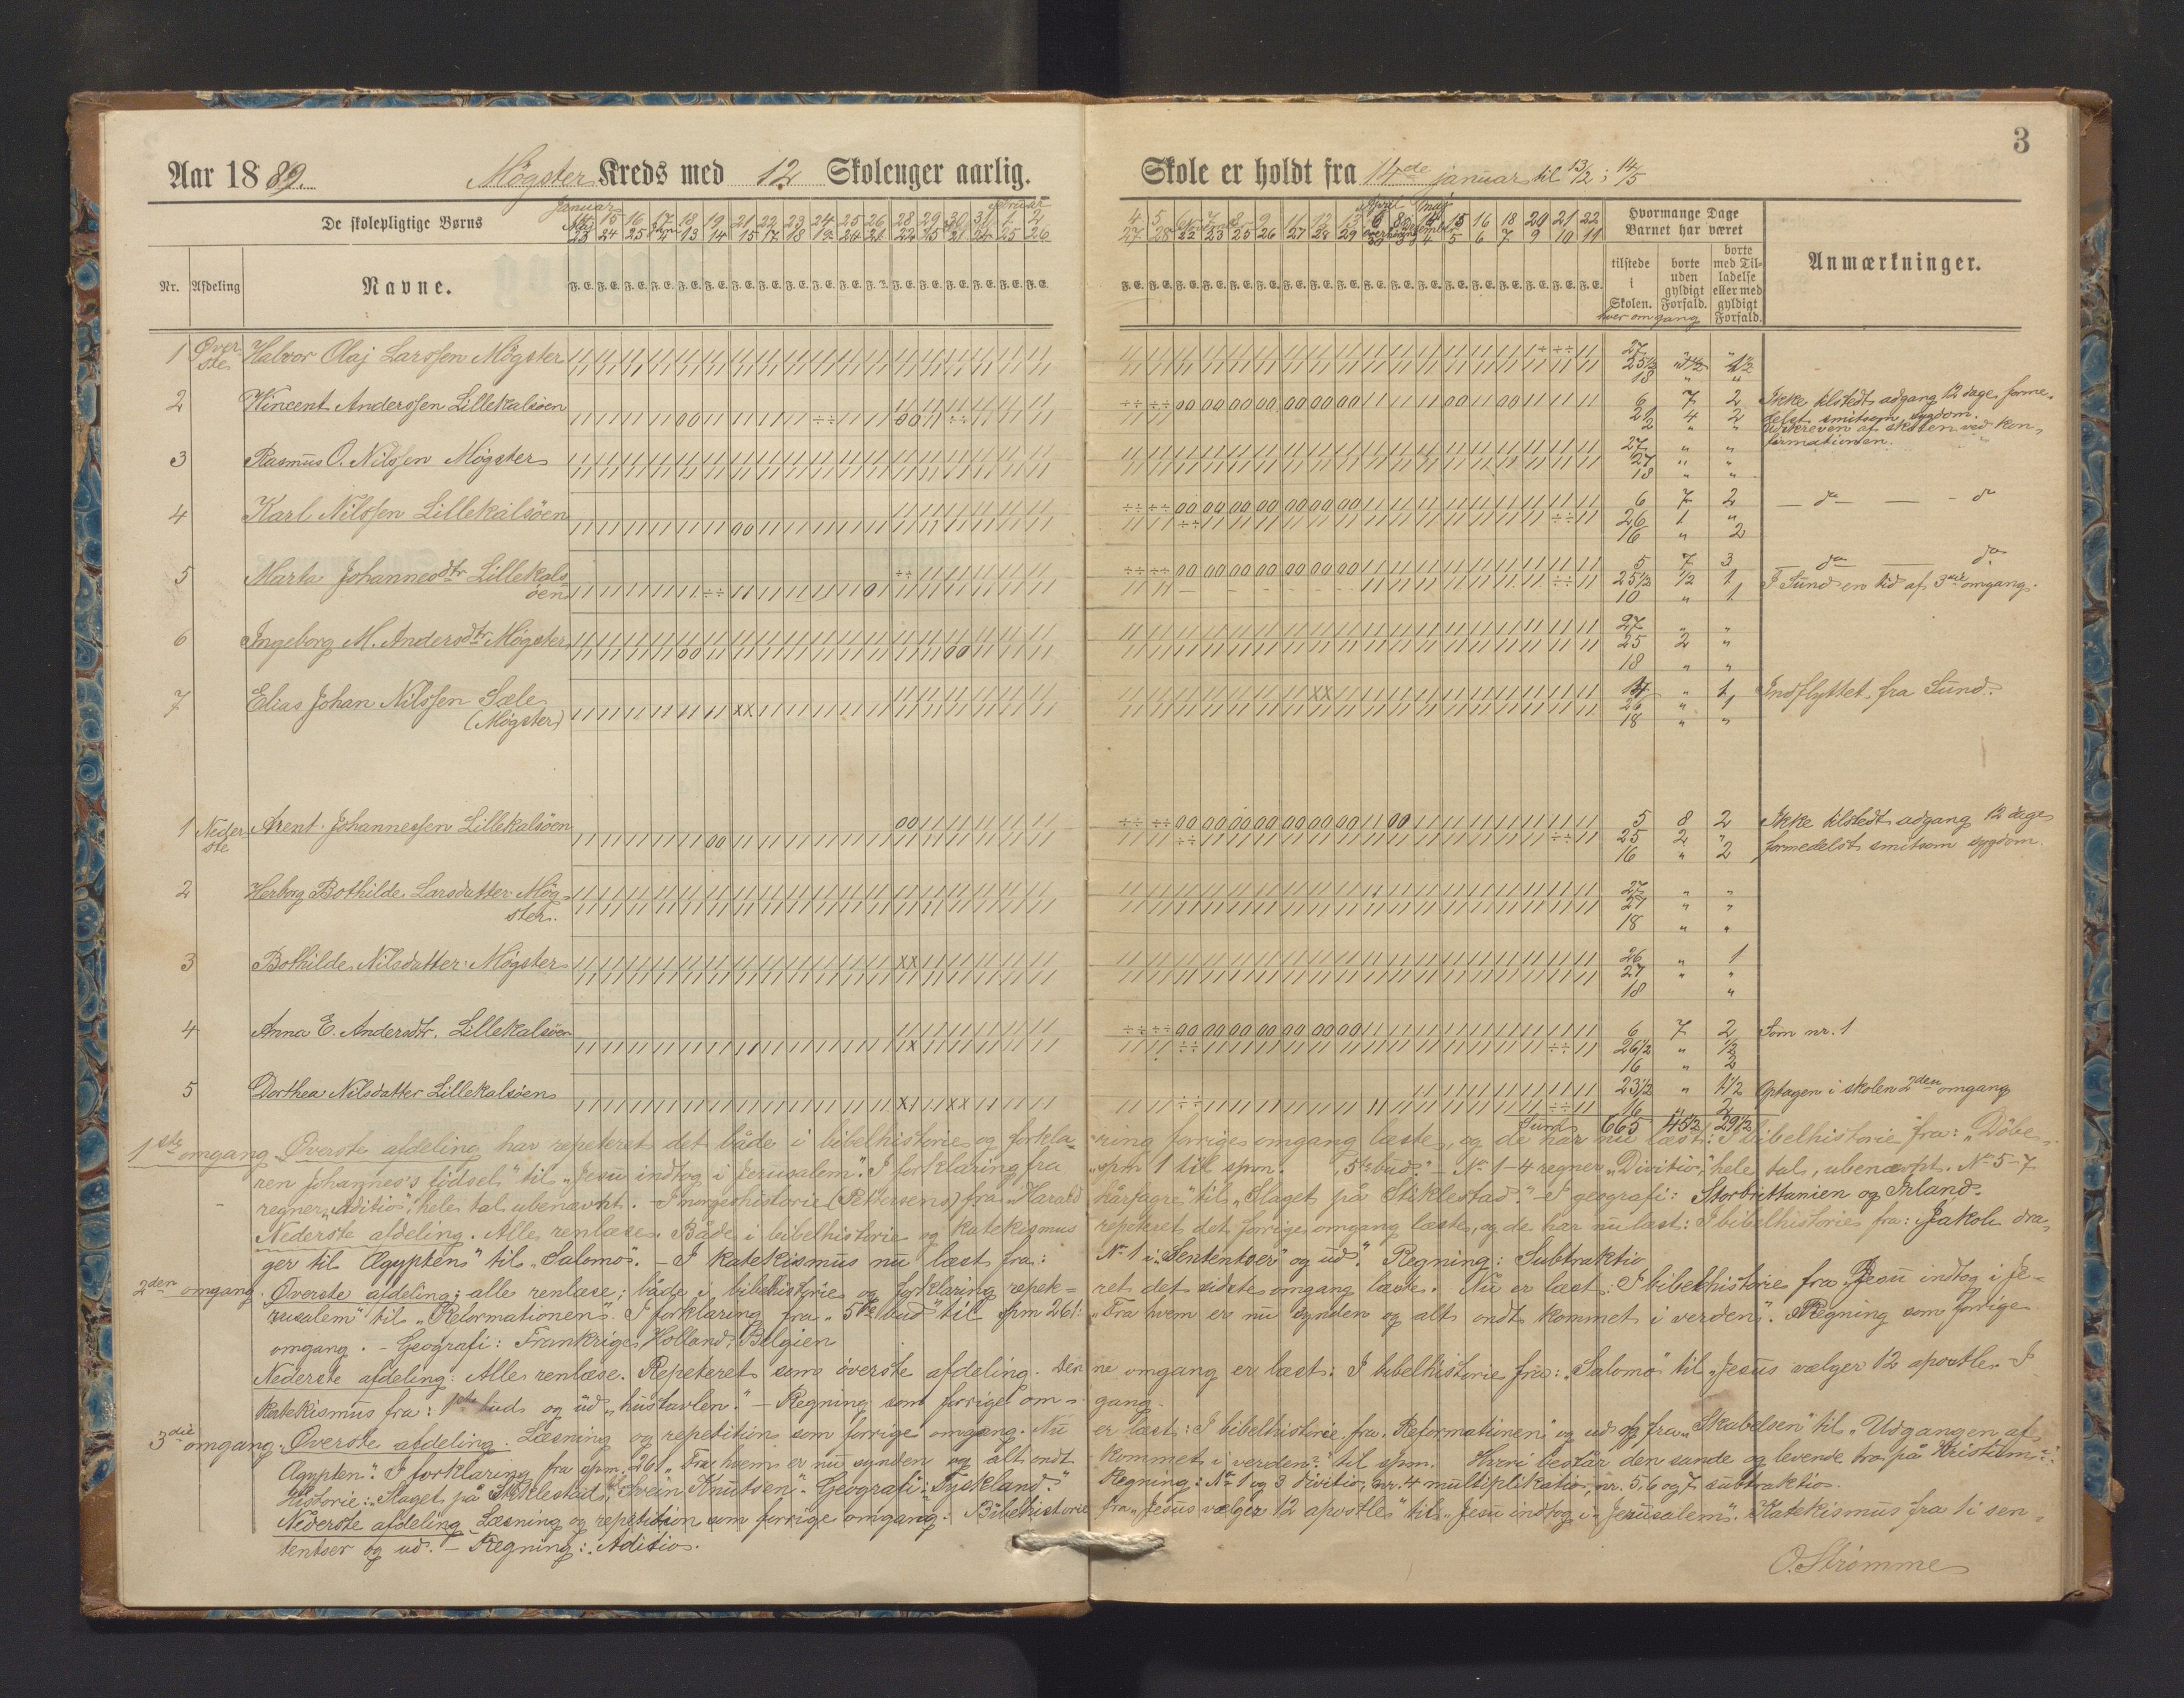 3
Aar 1889. Mögster Kreds med 12 Skolenger aarlig. Skole er holdt fra 14de januar til 13/2; 14/5
De skolepligtige Børns
Januar Februar April Maj
15 16 17 18 19 21 22 23 24 25 26 28 29 30 31 1 2
23 24 25 13 14 15 17 18 22 25 21 24 25 26
4 5 7 8 9 11 12 13 6 8 15 16 18 20 21 22
27 28 22 23 25 26 27 28 29 4 5 6 7 9 10 11
Hvormange Dage Barnet har været
Nr. Afdeling Navne.
tilstede i Skolen.
borte uden gyldigt Forfald.
borte med Tilladelse eller med gyldigt Forfald.
hver omgang
Anmærkninger.
1 Øverste Halvor Olaj Larssen Mögster 27 " "
25½ " 1½
18 " "
2 Vincent Anderssen Lillekalsöen 6 7 2 Ikke tilstedt adgang 12 dage forme-
21 4 2 delst smitsom sygdom.
2 " " Udskreven af skolen ved kon-
firmationen.
3 Rasmus O. Nilssen Mögster 27 " "
27 " "
18 " "
4 Karl Nilssen Lillekalsöen 6 7 2 — do — - do
26 1 "
16 " 2
5 Marta Johannesdtr Lillekals- 5 7 3 do — do
öen 25½ ½ 1 I Sund en tid af 3die omgang.
10 " 1
6 Ingeborg M. Andersdtr Mögster 27 " "
25 2 "
18 " "
7 Elias Johan Nilssen Sæle " 1 Indflyttet fra Sund.
(Mögster) 26 " 1
18 " "
1 Nederste Arent Johannessen Lillekalsöen 5 8 2 Ikke tilstedt adgang 12 dage
25 2 " formedelst smitsom sygdom.
16 " 2
2 Herborg Bothilde Larsdatter Mög- 27 " "
ster. 27 " "
18 " "
3 Bothilde Nilsdatter Mögster 26 " 1
27 " "
18 "
4 Anna E. Andersdtr. Lillekalsöen 6 7 2 Som nr. 1
26½ " ½
16 " 2
5 Dorthea Nilsdatter Lillekalsöen 23½ " 1½ Optagen i skolen 2den omgang
16 2
665 45½ 29½
1ste omgang Øverste afdeling har repeteret det både i bibelhistorie og forkla-ring forrige omgang læste, og de har nu læst: I bibelhistorie fra: „Döbe-
ren Johannes's födsel" til „Jesu indtog i Jerusalem". I forklaring fra „spm 1 til spm. „5te bud". – No 1-4 regner „Divitio", hele tal, ubenævnt. No 5-7
regner „Aditio", hele tal ubenævnt. – I norgeshistorie (Petersens) fra „Harald hårfagre" til „Slaget på Stiklestad". – I geografi: Storbrittanien og Irland.
Nederste afdeling. Alle renlæse. Både i bibelhistorie og katekismus repeteret det forrige omgang læste, og de har nu læst: I bibelhistorie fra: „Jakob dra-
ger til Ægypten" til „Salomo". – I katekismus nu læst fra: No 1 i „Sententser" og ud". Regning: Subtraktio
2den omgang. Øverste afdeling: alle renlæse; både i bibelhistorie og forklaring repete-ret det sidste omgang læste. Nu er læst: I bibelhistorie fra „Jesu indtog i Je-
rusalem" til „Reformationen". I forklaring fra „5te bud" til spm 261: „Fra hvem er nu synden og alt ondt kommet i verden". Regning som forrige
omgang. – Geografi: Frankrige, Holland, Belgien
Nederste afdeling: Alle renlæse. Repeteret som överste afdeling. Den-ne omgang er læst: I bibelhistorie fra: „Salomo" til „Jesus vælger 12 apostle. I
katekismus fra: 1ste bud og ud „hustavlen". – Regning som forrige om-gang.
3die omgang. Øverste afdeling. Læsning og repetition som forrige omgang. Nu er læst: I bibelhistorie fra „Reformationen" og ud og fra „Skabelsen" til „Udgangen af
Ægypten". I forklaring fra spm. 261 „Fra hvem er nu synden og alt ondt kommet i verden" til spm. Hvori består den sande og levende tro på Kristum".
Historie: „Slaget på Stiklestad", „Svein Knutsen". Geografi: „Tyskland". Regning: No 1 og 3 divitio, nr. 4 multiplikatio, nr. 5, 6 og 7 subtraktio.
Nederste afdeling Læsning og repetition som forrige omgang: Bibelhistorie fra „Jesus vælger 12 apostle" til „Jesu indtog i Jerusalem". Katekismus fra 1 i sen-
tentser og ud. – Regning: Aditio.
O. Strömme